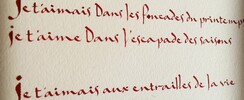 Je t'aimais Dans les foucades du printemps
je t'aime Dans l'escapade des saisons
je t'aimais aux entrailles de la vie